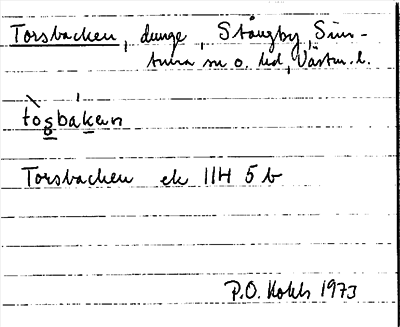 Torsbacken, dunge, Stångby, Sim-
tuna sn o. hd, Västm. l.
tòsbákȧn
Torsbacken ek 11H 5 b
P.O. Kolsh 1973